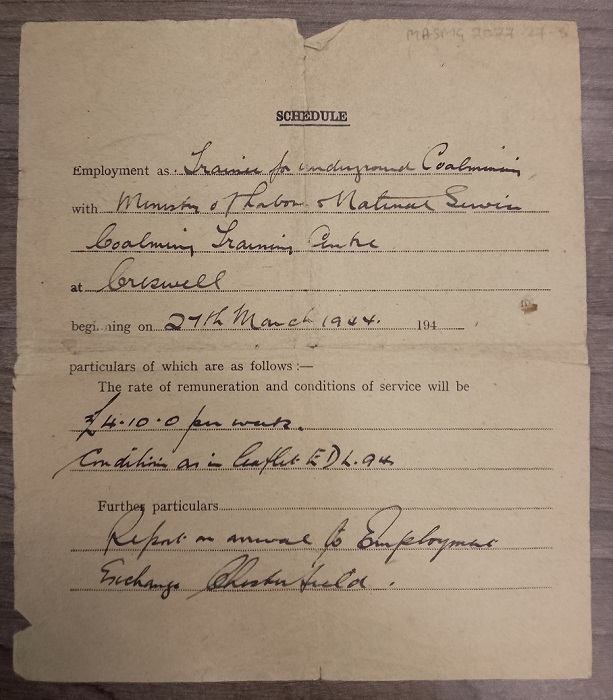 MASMG 2022 27-8
SCHEDULE
Employment as Trainee for underground Coalmining
with Ministry of Labour & National Service
Coalmining Training Centre
at Creswell
beginning on 27th March 1944. 194
particulars of which are as follows :—
The rate of remuneration and conditions of service will be
£4-10-0 per week.
Conditions as in leaflet E D L. 94
Further particulars
Report on arrival to Employment
Exchange Chesterfield .